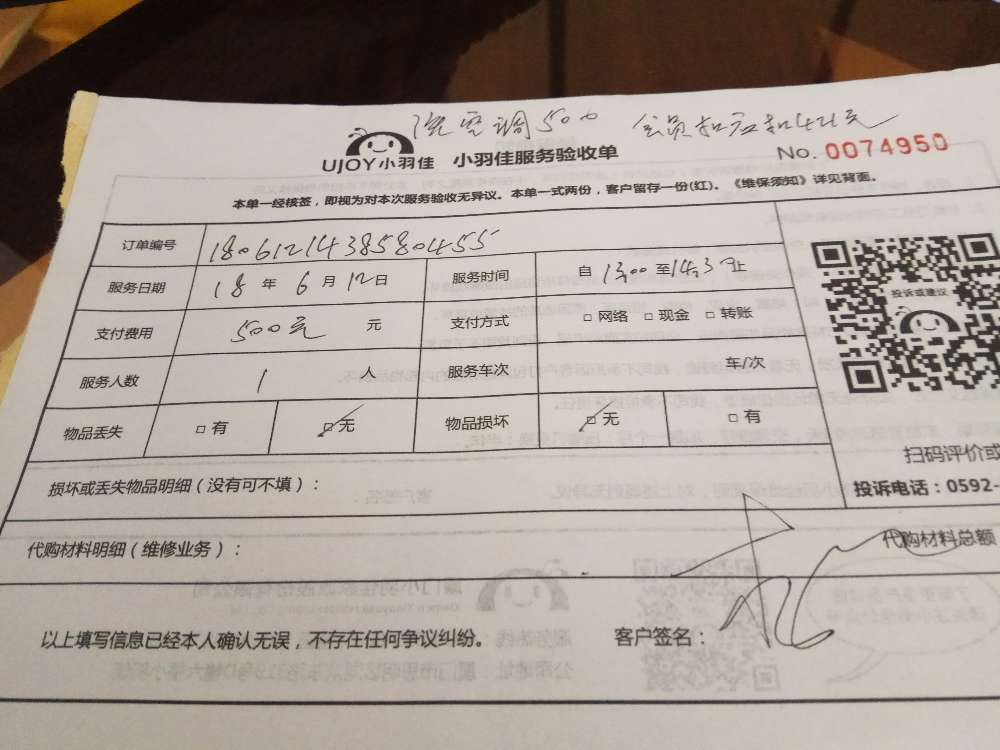 洗空调500 会员扣应扣421元
UJOY小羽佳 小羽佳服务验收单
No.0074950
本单一经核签，即视为对本次服务验收无异议。本单一式两份，客户留存一份(红)。《维保须知》详见背面。
订单编号 18061214385804555
服务日期 18 年 6 月 12日 服务时间 自 13:00 至 14:30 止
支付费用 500元 元 支付方式 □ 网络 □ 现金 □ 转账
服务人数 1 人 服务车次 车/次
物品丢失 □ 有 ☑ 无 物品损坏 ☑ 无 □ 有
投诉或建议
扫码评价或
投诉电话：0592-
损坏或丢失物品明细（没有可不填）：
代购材料明细（维修业务）：
代购材料总额
以上填写信息已经本人确认无误，不存在任何争议纠纷。
客户签名：